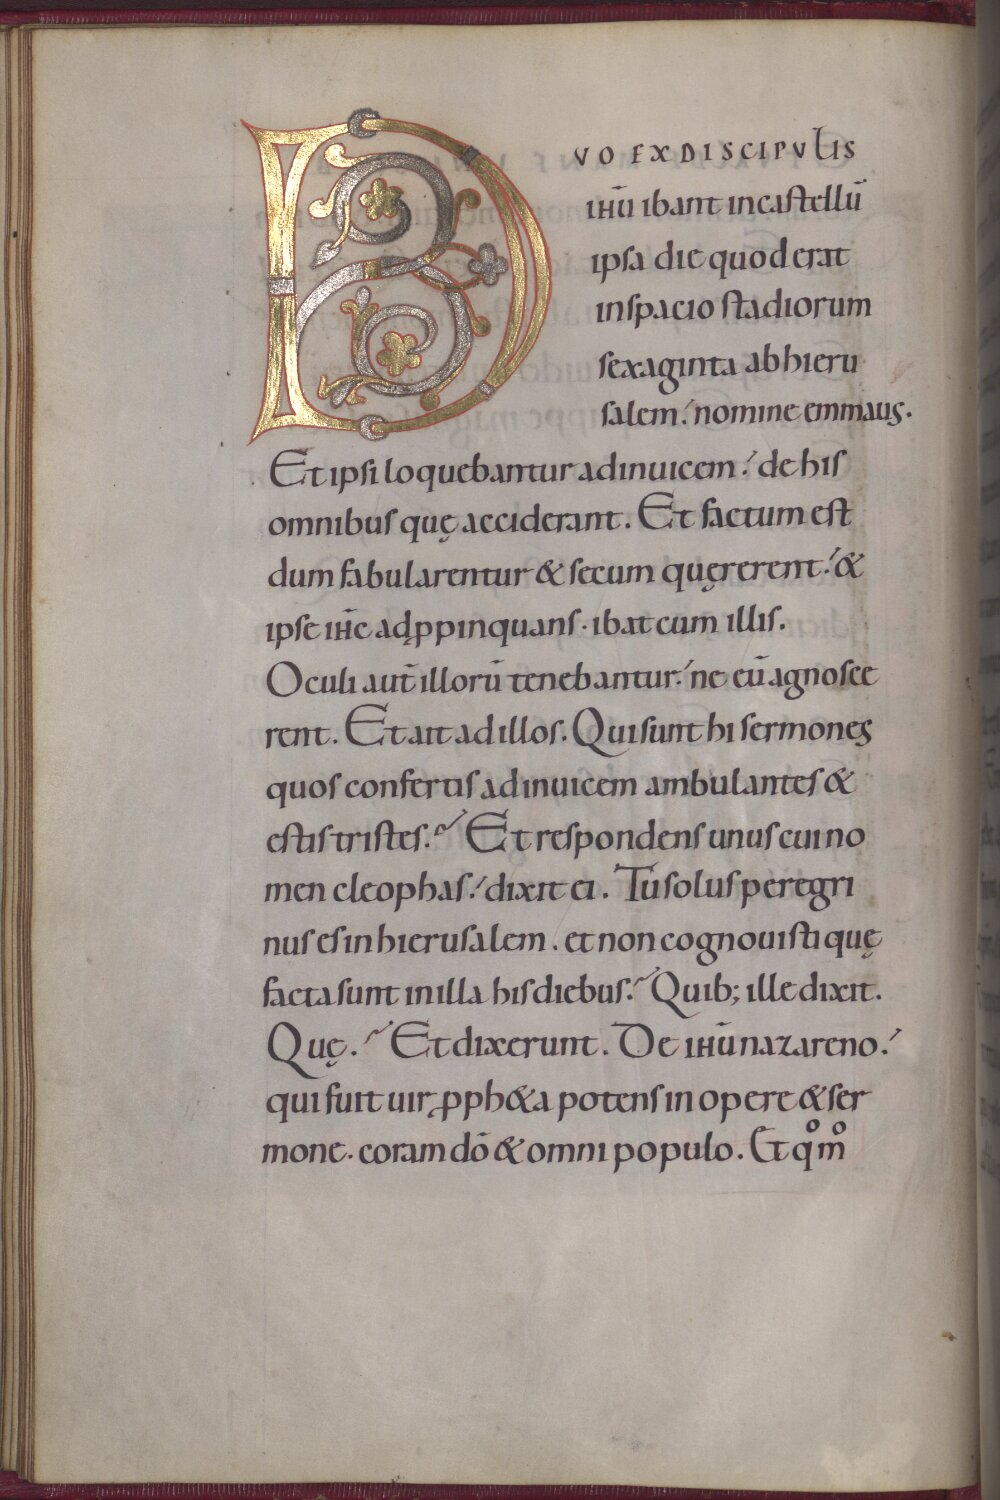 DUO EX DISCIPULIS
ιHū ibant in castellū
ipsa die quod erat
in spacio stadiorum
sexaginta ab hieru
salem. nomine emmaus.
Et ipsi loquebantur adinuicem. de his
omnibus quę acciderant. Et factum est
dum fabularentur & secum quęrerent. &
ipse ιHc̄ ad,ppinquans. ibat cum illis.
Oculi aut̄ illorū tenebantur. ne eū agnosce
rent. Et ait ad illos. Qui sunt hi sermones
quos confertis adinuicem ambulantes &
estis tristes? Et respondens unus cui no
men cleophas. dixit ei. Tu solus peregri
nus es in hierusalem. et non cognouisti quę
facta sunt in illa his diebus? Quib; ille dixit.
Quę? Et dixerunt. De ιHū nazareno.
qui fuit uir ꝓph&a potens in opere & ser
mone. coram dō & omni populo. Et qͦmͦ